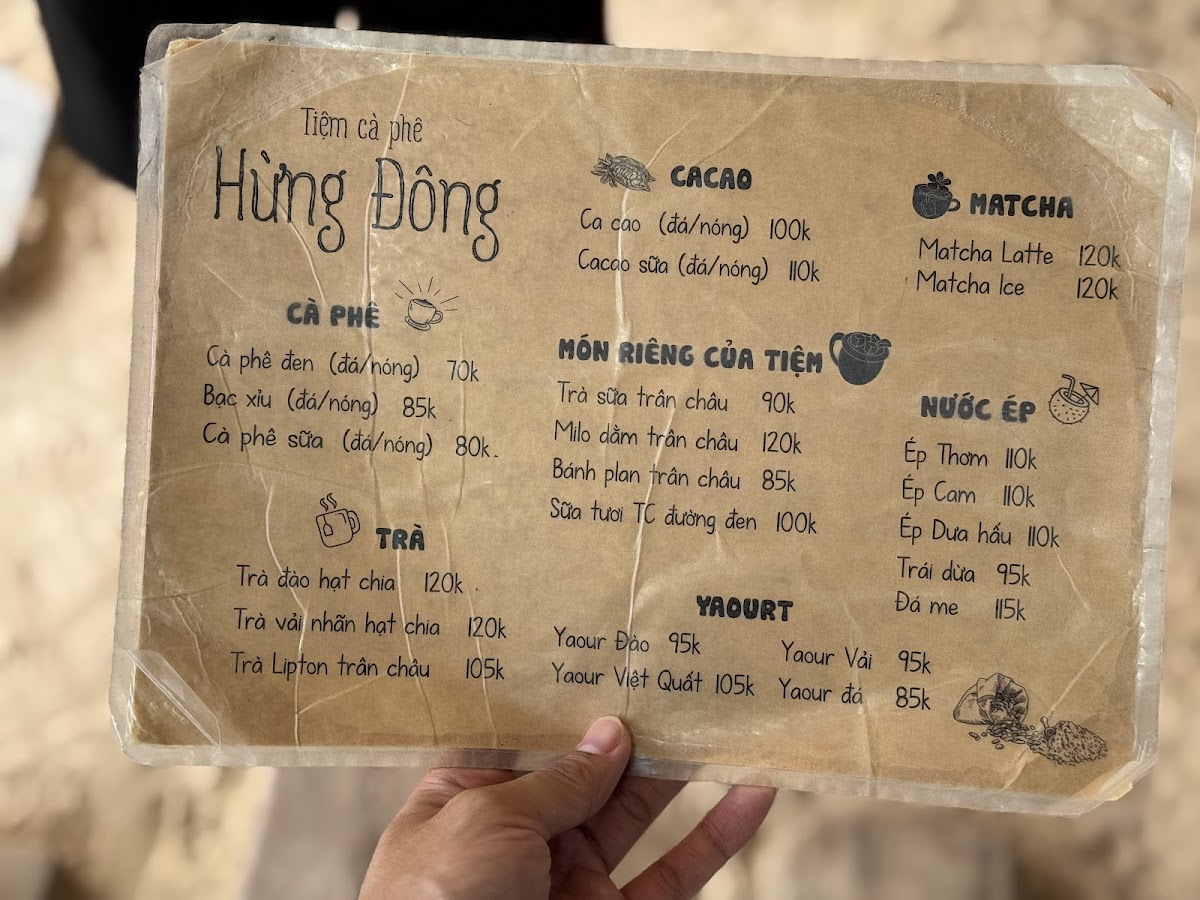 Tiệm cà phê
Hừng Đông
CÀ PHÊ
Cà phê đen (đá/nóng) 70k
Bạc xỉu (đá/nóng) 85k
Cà phê sữa (đá/nóng) 80k.
TRÀ
Trà đào hạt chia 120k.
Trà vải nhãn hạt chia 120k
Trà Lipton trân châu 105k
CACAO
Ca cao (đá/nóng) 100k
Cacao sữa (đá/nóng) 110k
MÓN RIÊNG CỦA TIỆM
Trà sữa trân châu 90k
Milo dằm trân châu 120k
Bánh plan trân châu 85k
Sữa tươi TC đường đen 100k
YAOURT
Yaour Đào 95k Yaour Vải 95k
Yaour Việt Quất 105k Yaour đá 85k
MATCHA
Matcha Latte 120k
Matcha Ice 120k
NƯỚC ÉP
Ép Thơm 110k
Ép Cam 110k
Ép Dưa hấu 110k
Trái dừa 95k
Đá me 115k